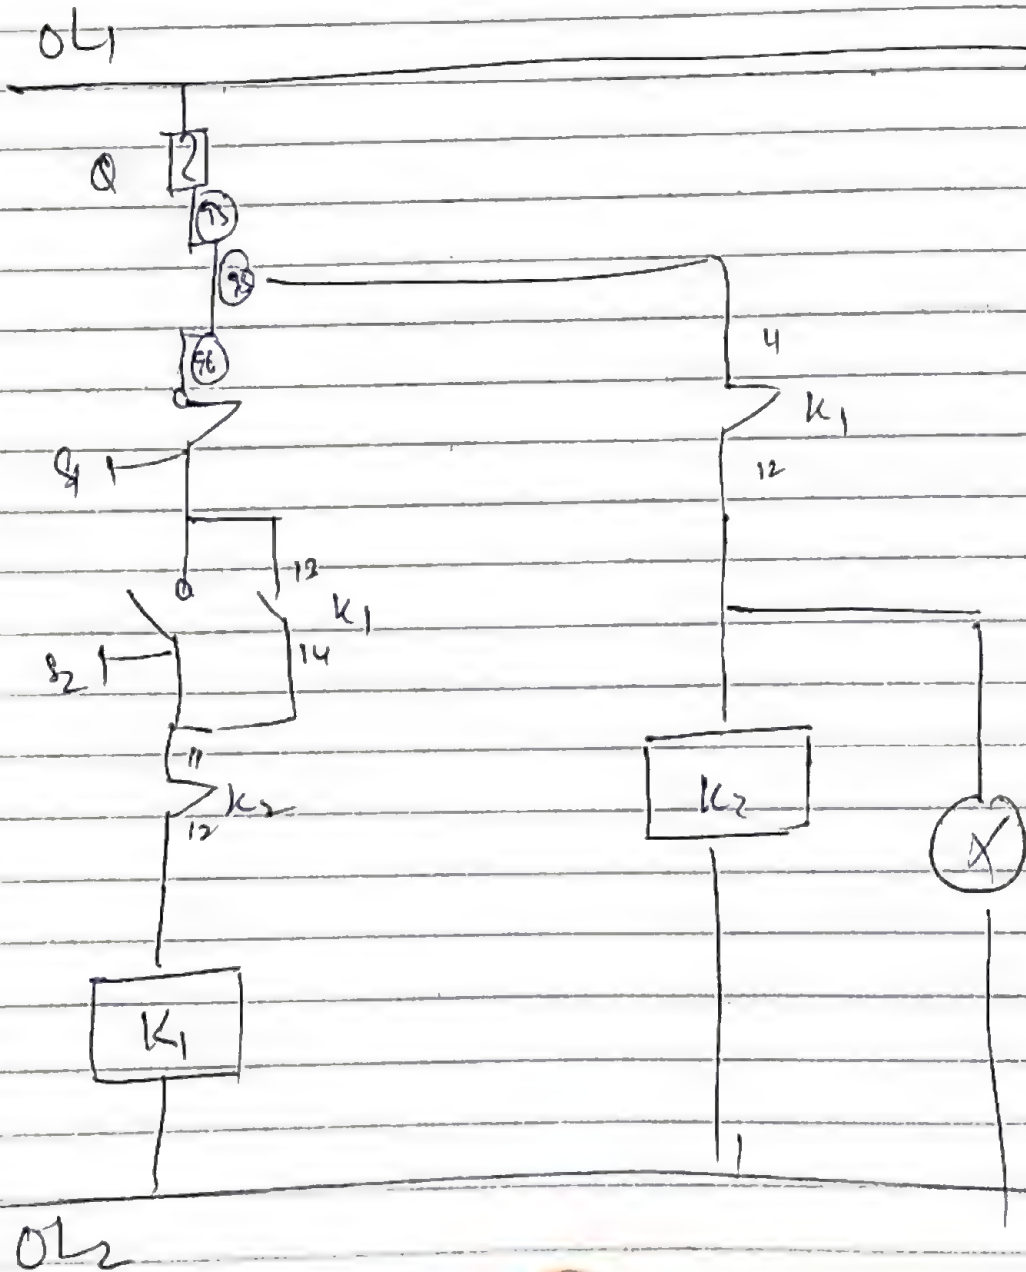 OL1
Q
95
98
96
4
K1
12
S1
13
K1
14
S2
11
K2
12
K2
X
K1
OL2